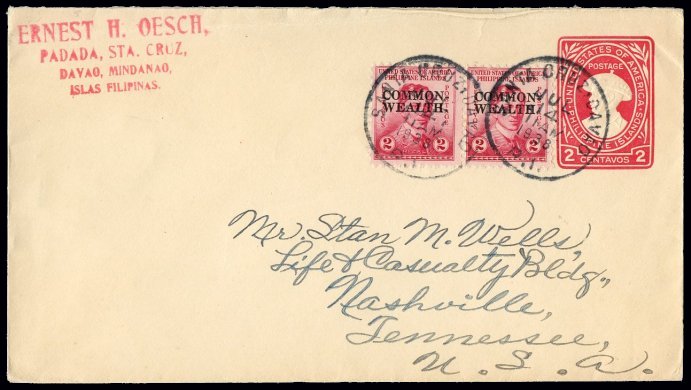 ERNEST H. OESCH,
PADADA, STA. CRUZ,
DAVAO, MINDANAO,
ISLAS FILIPINAS.
UNITED STATES OF AMERICA
COMMON-
WEALTH.
2 2
UNITED STATES OF AMERICA
COMMON-
WEALTH.
2 2
1938
P.I.
SANTA CRUZ, DAVAO
JUL
AM
1938
P.I.
UNITED STATES OF AMERICA
POSTAGE
PHILIPPINE ISLANDS
2 CENTAVOS 2
Mr. Stan M. Wells,
Life & Casualty Bldg.,
Nashville,
Tennessee,
U. S. A.